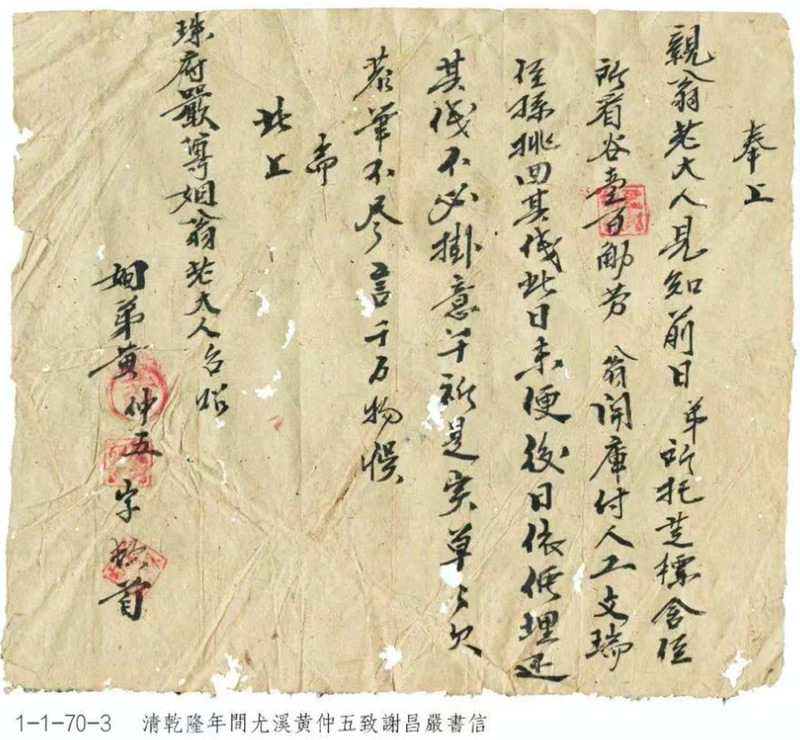 奉上
親翁老大人見知前日弟所托芝標舍侄
所看谷壹百觔劳 翁開庫付人工文瑞
侄孫挑回其伐此日未便後日依価理还
其伐不必掛意千祈是实草々欠
恭筆不尽言千万物悮
耑
此上
珠府嚴尊姻翁老大人台照
姻弟黄仲五字頓首
1-1-70-3 清乾隆年間尤溪黄仲五致謝昌嚴書信